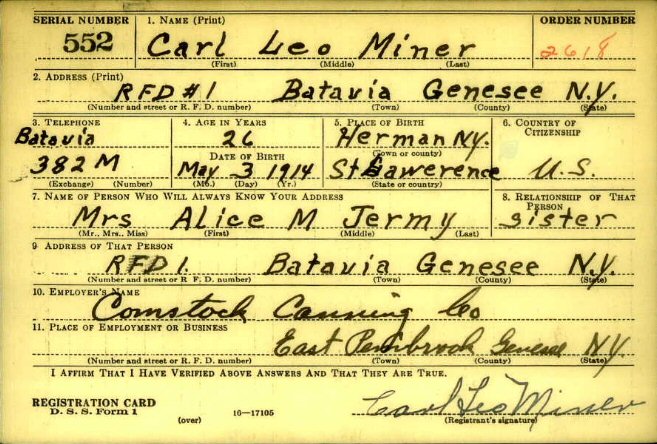 SERIAL NUMBER 1. NAME (Print) ORDER NUMBER
552 Carl Leo Miner 2618
(First) (Middle) (Last)
2. ADDRESS (Print)
RFD #1 Batavia Genesee N.Y.
(Number and street or R. F. D. number) (Town) (County) (State)
3. TELEPHONE 4. AGE IN YEARS 5. PLACE OF BIRTH 6. COUNTRY OF CITIZENSHIP
Batavia 26 Herman N.Y.
(Town or county)
DATE OF BIRTH
382 M May 3 1914 St Lawerence U.S.
(Exchange) (Number) (Mo.) (Day) (Yr.) (State or country)
7. NAME OF PERSON WHO WILL ALWAYS KNOW YOUR ADDRESS 8. RELATIONSHIP OF THAT PERSON
Mrs Alice M Jermy sister
(Mr., Mrs., Miss) (First) (Middle) (Last)
9 ADDRESS OF THAT PERSON
RFD 1. Batavia Genesee N.Y.
(Number and street or R. F. D. number) (Town) (County) (State)
10. EMPLOYER'S NAME
Comstock Canning Co
11. PLACE OF EMPLOYMENT OR BUSINESS
East Pembrook Genesee N.Y.
(Number and street or R. F. D. number) (Town) (County) (State)
I AFFIRM THAT I HAVE VERIFIED ABOVE ANSWERS AND THAT THEY ARE TRUE.
REGISTRATION CARD
D. S. S. Form 1 (over) 16—17105 Carl Leo Miner
(Registrant's signature)